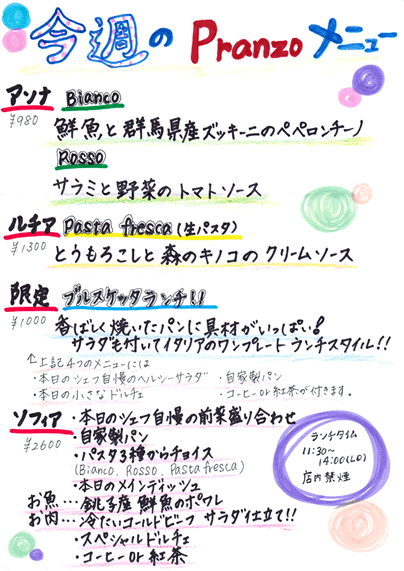 今週の Pranzo メニュー
アンナ Bianco
¥980
鮮魚と群馬県産ズッキーニのペペロンチーノ
Rosso
サラミと野菜のトマトソース
ルチア Pasta fresca(生パスタ)
¥1300
とうもろこしと森のキノコのクリームソース
限定 ブルスケッタランチ!!
¥1000
香ばしく焼いたパンに具材がいっぱい!
サラダも付いてイタリアのワンプレートランチスタイル!!
↑上記4つのメニューには
・本日のシェフ自慢のヘルシーサラダ ・自家製パン
・本日の小さなドルチェ ・コーヒーor紅茶が付きます。
ソフィア ・本日のシェフ自慢の前菜盛り合わせ
¥2600
・自家製パン
・パスタ3種からチョイス
(Bianco, Rosso, Pasta fresca)
・本日のメインディッシュ
お魚…銚子産鮮魚のポワレ
お肉…冷たいコールドビーフ サラダ仕立て!!
・スペシャルドルチェ
・コーヒーor紅茶
ランチタイム
11:30~
14:00(LO)
店内禁煙